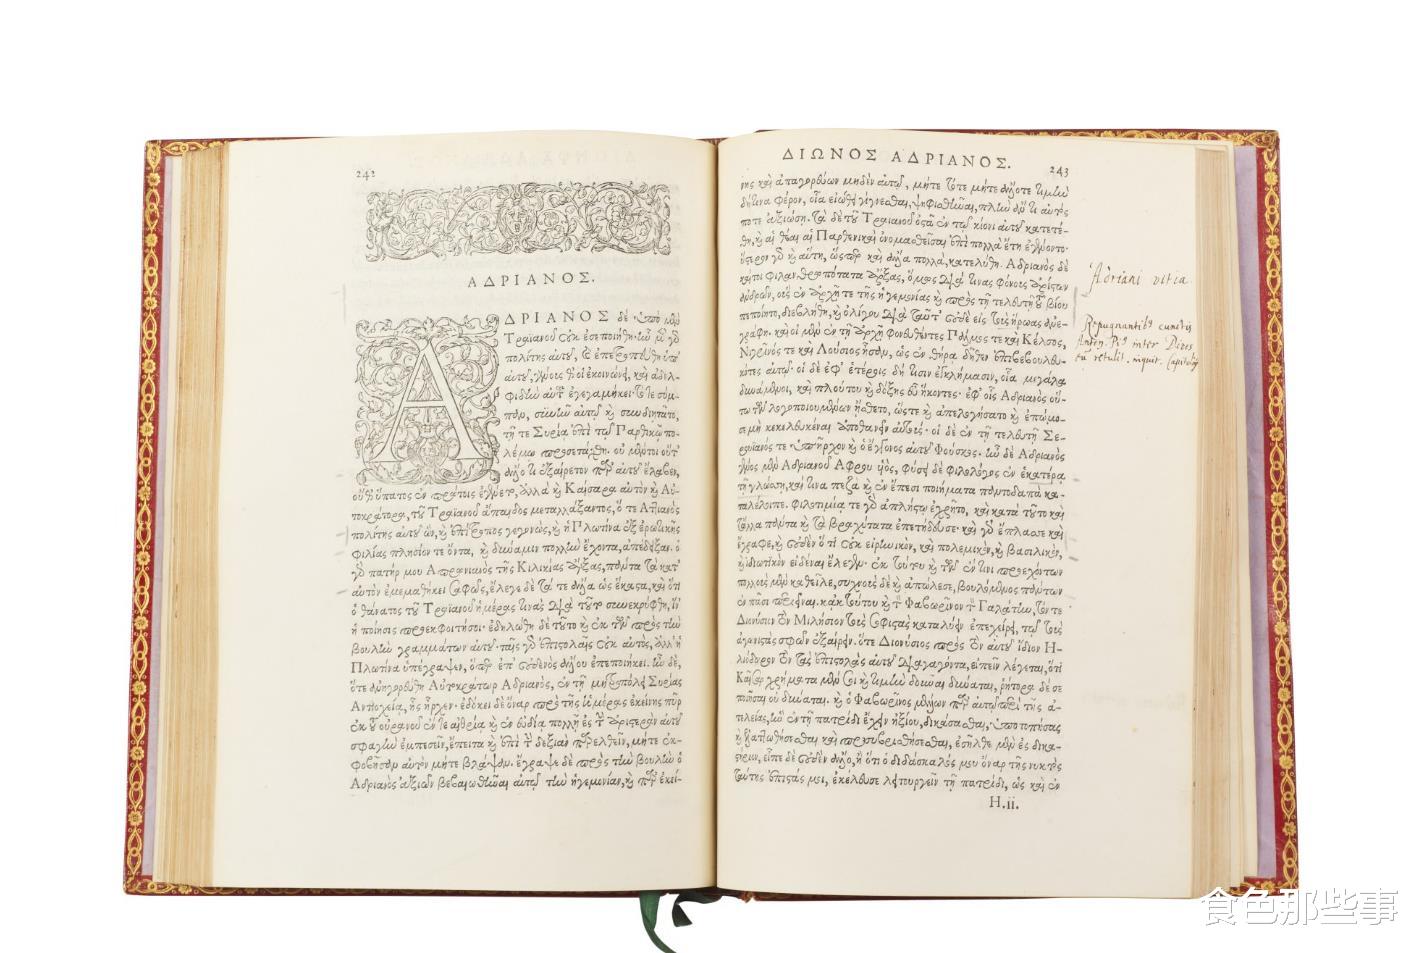 242
ΑΔΡΙΑΝΟΣ.
ΔΡΙΑΝΟΣ δὲ ὑπὸ μὲν
Τραϊανοῦ οὐκ ἐσεποιήθη· ἦν μὲν γὸ
πολίτης αὐτοῦ,
φιδίῳ αὐτοῦ ἐγεγαμήκει·
τῇ τε Συρίᾳ ἐπὶ τῷ Παρθικῷ πο-
λέμῳ προσετάχθη· οὐ μέντοι οὔτ'
ἄλλο τι ἐξαίρετον παρ' αὐτοῦ ἔλαβεν,
ἀλλὰ καὶ Καίσαρα αὐτὸν καὶ Αὐ-
τοκράτορα, τοῦ Τραϊανοῦ ἄπαιδος μεταλλάξαντος, ὅ τε Ἀτιανὸς
πολίτης αὐτοῦ ὢν, καὶ ἐπίτροπος γεγονὼς, καὶ ἡ Πλωτῖνα ἐξ ἐρωτικῆς
φιλίας πλησίον τε ὄντα, καὶ δύναμιν πολλὴν ἔχοντα, ἀπέδειξαν. ὁ
γὸ πατήρ μου Ἀπρωνιανὸς τῆς Κιλικίας ἄρξας, πάντα τὰ κατ'
αὐτὸν ἐμεμαθήκει σαφῶς, ἔλεγε δὲ τά τε ἄλλα ὡς ἕκαστα, καὶ ὅτι
ὁ θάνατος τοῦ Τραϊανοῦ ἡμέρας τινὰς διὰ τοῦτο συνεκρύφθη, ἵν'
ἡ ποίησις προεκφοιτήσοι· ἐδηλώθη δὲ τοῦτο καὶ ἐκ τῶν πρὸς τὴν
βουλὴν γραμμάτων αὐτοῦ· ταῖς γὸ ἐπιστολαῖς οὐκ αὐτὸς, ἀλλ' ἡ
Πλωτῖνα ὑπέγραψεν, ὅπερ ἐπ' οὐδενὸς ἄλλου ἐπεποιήκει. ἦν δὲ,
ὅτε ἀνηγορεύθη Αὐτοκράτωρ Ἀδριανὸς, ἐν τῇ μητροπόλει Συρίας
Ἀντιοχείᾳ, ἧς ἦρχεν· ἐδόκει δὲ ὄναρ πρὸ τῆς ἡμέρας ἐκείνης πῦρ
ἐκ τοῦ οὐρανοῦ ἐν τε αἰθρίᾳ καὶ ἐν εὐδίᾳ πολλῇ ἐς τὴν ἀριστερὰν αὐτοῦ
σφαγὴν ἐμπεσεῖν, ἔπειτα καὶ ἐπὶ τὴν δεξιὰν παρελθεῖν, μήτε ἐκ-
φοβῆσαν αὐτὸν μήτε βλάψαν. ἔγραψε δὲ πρὸς τὴν βουλὴν ὁ
Ἀδριανὸς ἀξιῶν βεβαιωθῆναι αὐτῷ τὴν ἡγεμονίαν, καὶ παρ' ἐκεί-
ΔΙΩΝΟΣ ΑΔΡΙΑΝΟΣ.
243
νης καὶ ἀπαγορεύων μηδὲν αὐτῷ, μήτε τότε μήτε ἄλλοτε τιμὴν
δή τινα φέρον, οἷα εἰώθει γίγνεσθαι, ψηφισθῆναι, πλὴν ἄν τι αὐτός
ποτε ἀξιώσῃ. τὰ δὲ τοῦ Τραϊανοῦ ὀστᾶ ἐν τῷ κίονι αὐτοῦ κατετέ-
θη, καὶ αἱ θέαι αἱ Παρθικαὶ ὀνομασθεῖσαι ἐπὶ πολλὰ ἔτη ἐγένοντο·
ὕστερον γὸ καὶ αὕτη, ὥσπερ καὶ ἄλλα πολλὰ, κατελύθη. Ἀδριανὸς δὲ
καίτοι φιλανθρωπότατα ἄρξας, ὅμως διά τινας φόνους ἀρίστων
ἀνδρῶν, οὓς ἐν ἀρχῇ τε τῆς ἡγεμονίας καὶ πρὸς τῇ τελευτῇ τοῦ βίου
πεποίητο, διεβλήθη, καὶ ὀλίγου διὰ ταῦτ' οὐδὲ εἰς τοὺς ἥρωας ἀνε-
γράφη· καὶ οἱ μὲν ἐν τῇ ἀρχῇ φονευθέντες Πάλμος τε καὶ Κέλσος,
Νιγρῖνός τε καὶ Λούσιος ἦσαν, ὡς ἐν θήρᾳ δῆθεν ἐπιβεβουλευ-
κότες αὐτῷ· οἱ δὲ ἐφ' ἑτέροις δή τισιν ἐγκλήμασιν, οἷα μεγάλα
δυνάμενοι, καὶ πλούτου καὶ δόξης εὖ ἥκοντες· ἐφ' οἷς Ἀδριανὸς οὕ-
τω τῶν λογοποιουμένων ᾔσθετο, ὥστε καὶ ἀπελογήσατο καὶ ἐπώμο-
σε μὴ κεκελευκέναι ἀποθανεῖν αὐτούς· οἱ δὲ ἐν τῇ τελευτῇ Σε-
ρουιανός τε ὑπῆρχον καὶ ὁ ἔγγονος αὐτοῦ Φοῦσκος. ἦν δὲ Ἀδριανὸς
γένος μὲν Ἀδριανοῦ Ἄφρου υἱὸς, φύσει δὲ φιλολόγος ἐν ἑκατέρᾳ
τῇ γλώσσῃ, καί τινα πεζὰ καὶ ἐν ἔπεσι ποιήματα παντοδαπὰ κα-
ταλέλοιπε. φιλοτιμίᾳ τε γὸ ἀπλήστῳ ἐχρῆτο, καὶ κατὰ τοῦτο καὶ
τἄλλα πάντα καὶ τὰ βραχύτατα ἐπετήδευσε· καὶ γὸ ἔπλασσε καὶ
ἔγραφε, καὶ οὐδὲν ὅ τι οὐκ εἰρηνικὸν, καὶ πολεμικὸν, καὶ βασιλικὸν,
καὶ ἰδιωτικὸν εἰδέναι ἔλεγεν.
πολλοὺς μὲν καθεῖλε, συχνοὺς δὲ καὶ ἀπώλεσε, βουλόμενος πάντων
ἐν πᾶσι περιεῖναι. κἀκ τούτου καὶ τὸν Φαβωρῖνον τὸν Γαλάτην, τόν τε
Διονύσιον τὸν Μιλήσιον τοὺς σοφιστὰς καταλύειν ἐπεχείρει,
Διονύσιος πρὸς τὸν αὐτοῦ ἴδιον Ἡ-
λιόδωρον τὸν τὰς ἐπιστολὰς αὐτοῦ διαγαγόντα, εἰπεῖν λέγεται, ὅτι
Καῖσαρ χρήματα μέν σοι καὶ τιμὴν δοῦναι δύναται, ῥήτορα δέ σε
ποιῆσαι οὐ δύναται. καὶ ὁ Φαβωρῖνος μέλλων παρ' αὐτῷ περὶ τῆς ἀ-
τελείας, ἣν ἐν τῇ πατρίδι ἔχειν ἠξίου, δικάσασθαι, ὑποτοπήσας
καὶ ἐλαττωθήσεσθαι καὶ προσυβρισθήσεσθαι, ἐσῆλθε μὲν ἐς δικα-
στήριον, εἶπε δὲ οὐδὲν ἄλλο, ἢ ὅτι ὁ διδάσκαλός μου ὄναρ τῆς νυκτὸς
ταύτης ἐπιστάς μοι, ἐκέλευσε λειτουργεῖν τῇ πατρίδι, ὡς καὶ ἐν
H.ii.
Adriani vitia.
Repugnantibꝰ cunctis
Anton. Piꝰ inter Divos
retulit. inquit. Capitolinꝰ
食色那些事